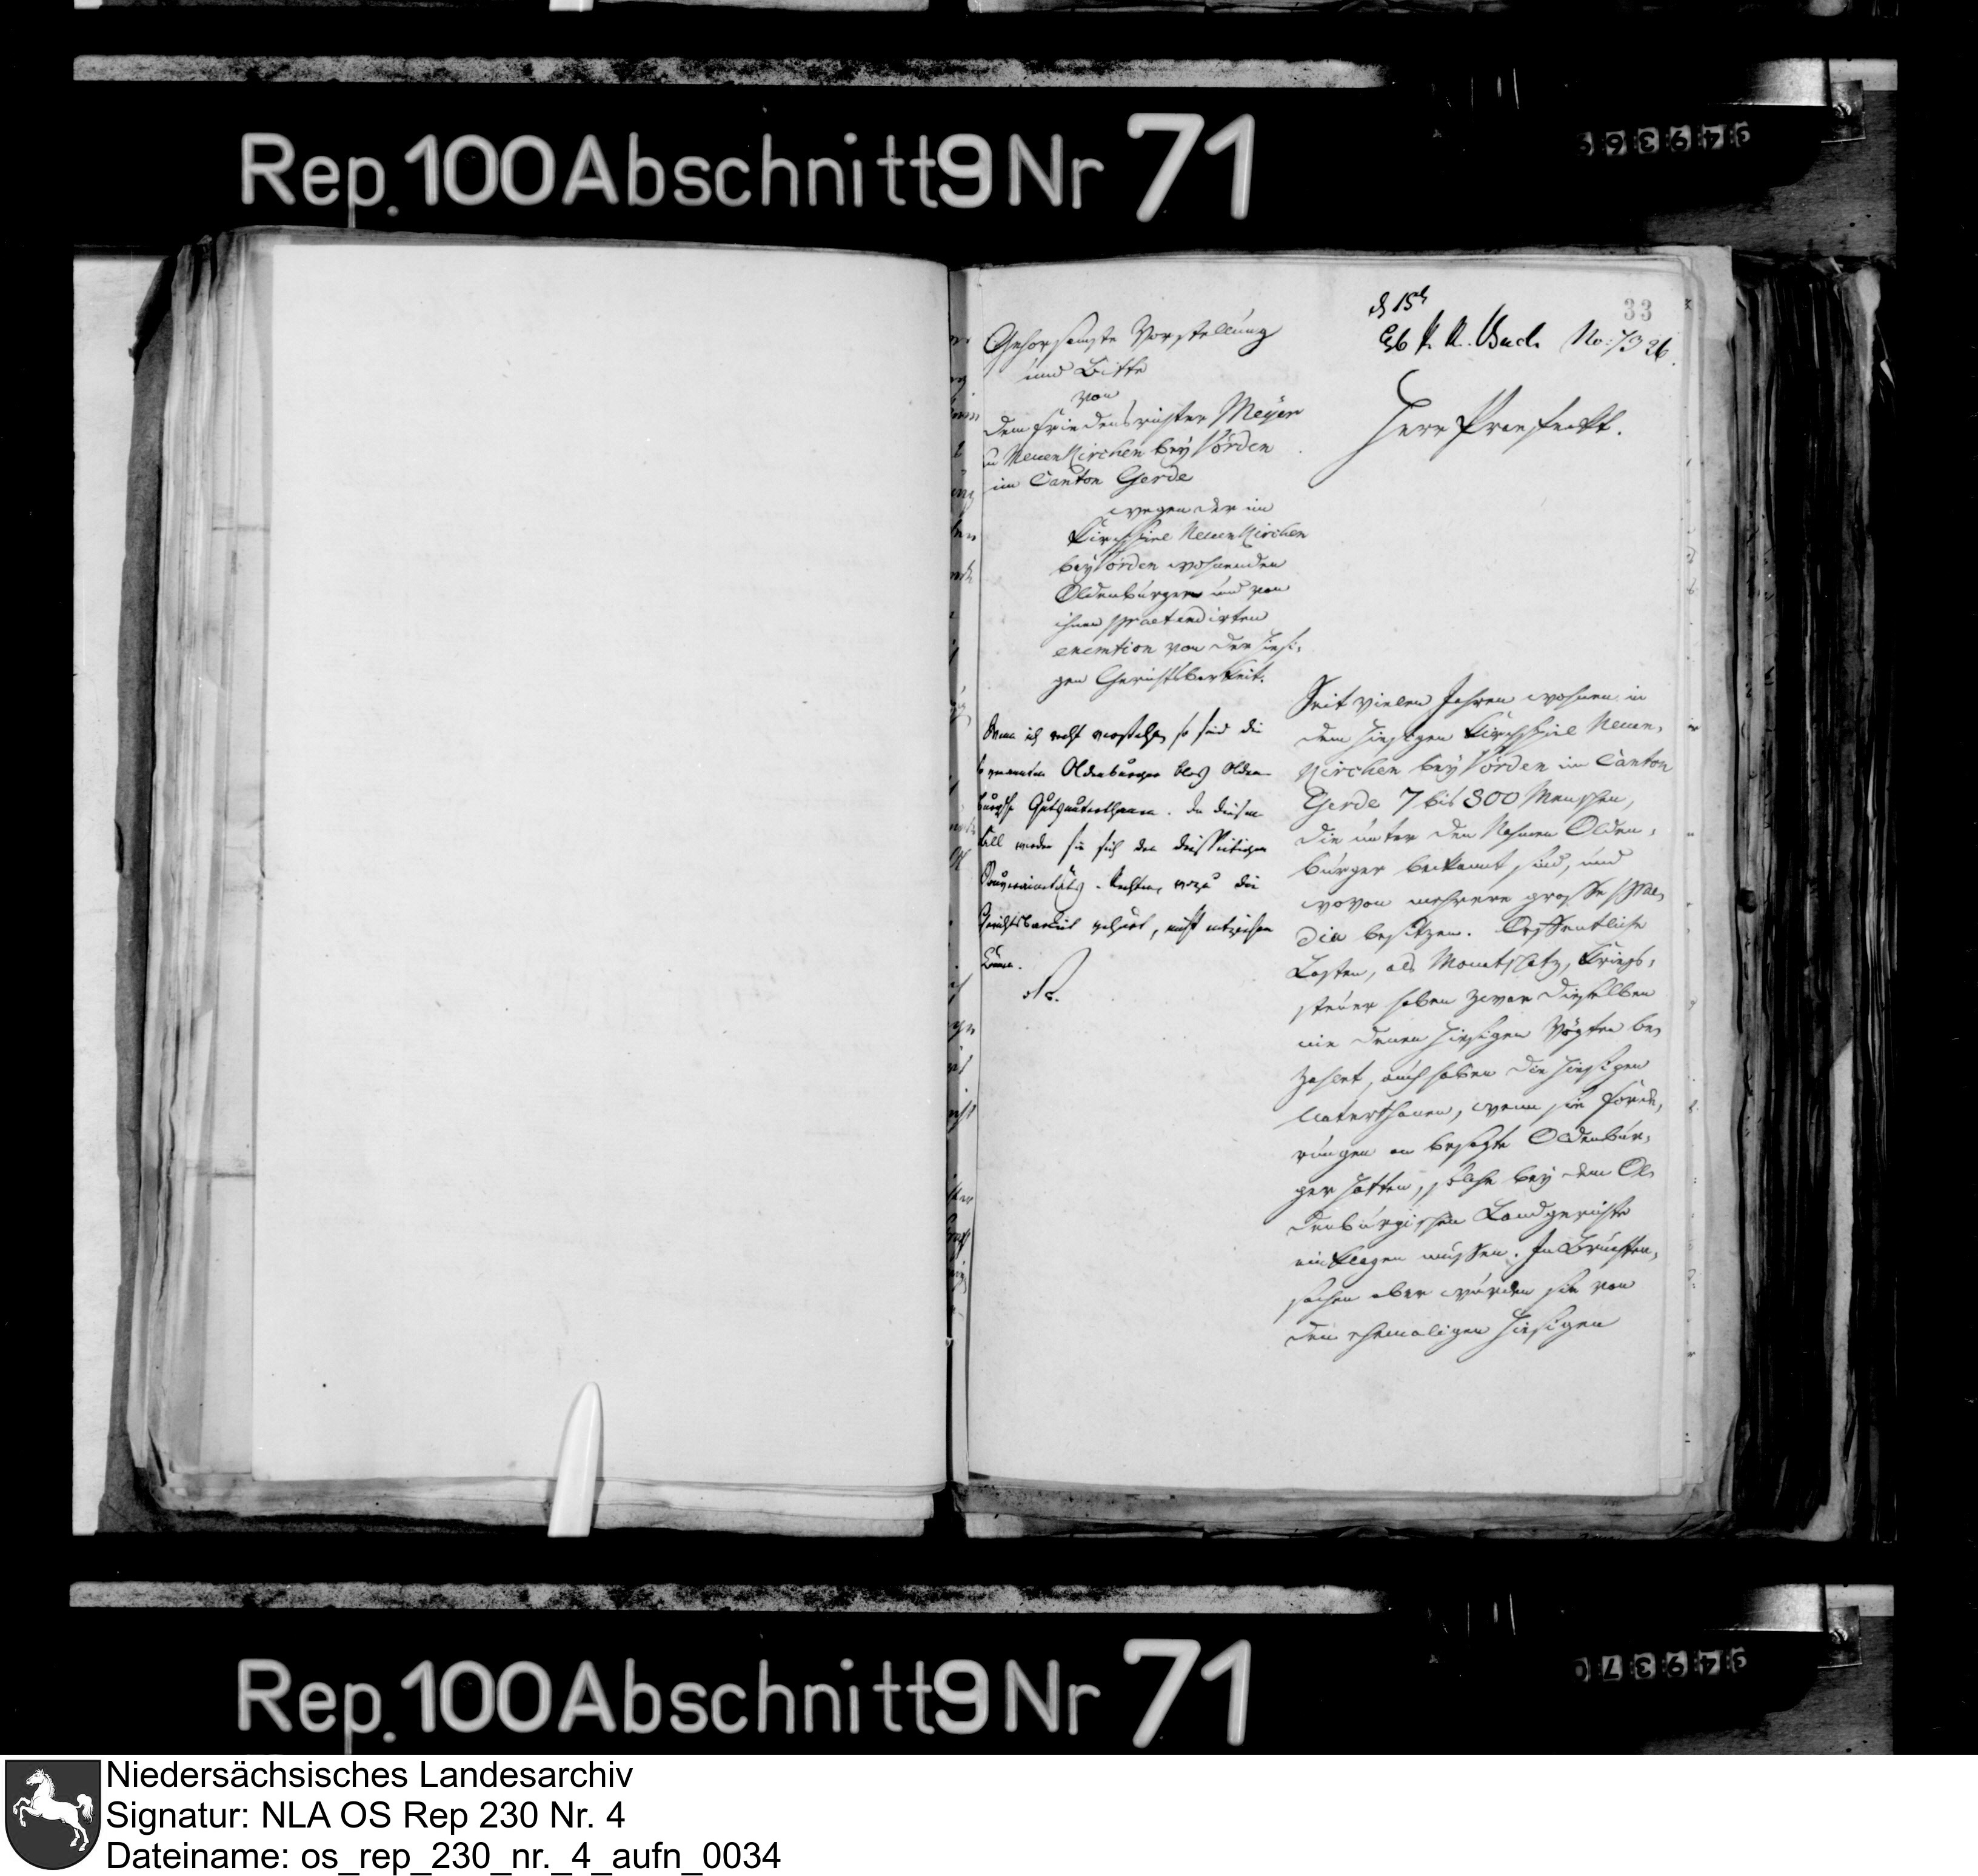 Rep. 100 Abschnitt 9 Nr 71
33
Gehorsamste Vorstellung
und Bitte
von
dem Friedensrichter Meÿer
zu Neuenkirchen beÿ Vörden
im Canton Gerde
wegen der im
Kirchspiel Neuenkirchen
beÿ Vörden wohnenden
Oldenburgern und von
ihnen praetendirten
exemtion von der hiesi-
gen Gerichtsbarkeit.
Wenn ich recht verstehe, so sind die
so genannten Oldenburger blos Olden-
burgsche Gutsunterthanen. In diesem
Fall werden sie sich den diesseitigen
Souverainitäts-Rechten, wozu die
Gerichtsbarkeit gehört, nicht entziehen
können.
No: 1326.
Herr Praefeckt.
Seit vielen Jahren wohnen in
dem hiesigen Kirchspiel Neuen-
kirchen beÿ Vörden im Canton
Gerde 7 bis 800 Menschen,
die unter den Nahmen Olden-
burger bekannt sind, und
wovon mehrere grosse prae-
dia besitzen. Oeffentliche
Lasten, als Monatschatz, Kriegs-
steuer haben zwar dieselben
nie denen hiesigen Vögten be-
zahlet, auch haben die hiesigen
Unterthanen, wenn sie Forde-
rungen an besagte Oldenbur-
ger hatten, solche beÿ dem Ol-
denburgischen Landgerichte
einklagen müssen. In Brüchten-
sachen aber wurden sie von
den ehemaligen hiesigen
Rep. 100 Abschnitt 9 Nr 71
Niedersächsisches Landesarchiv
Signatur: NLA OS Rep 230 Nr. 4
Dateiname: os_rep_230_nr._4_aufn_0034